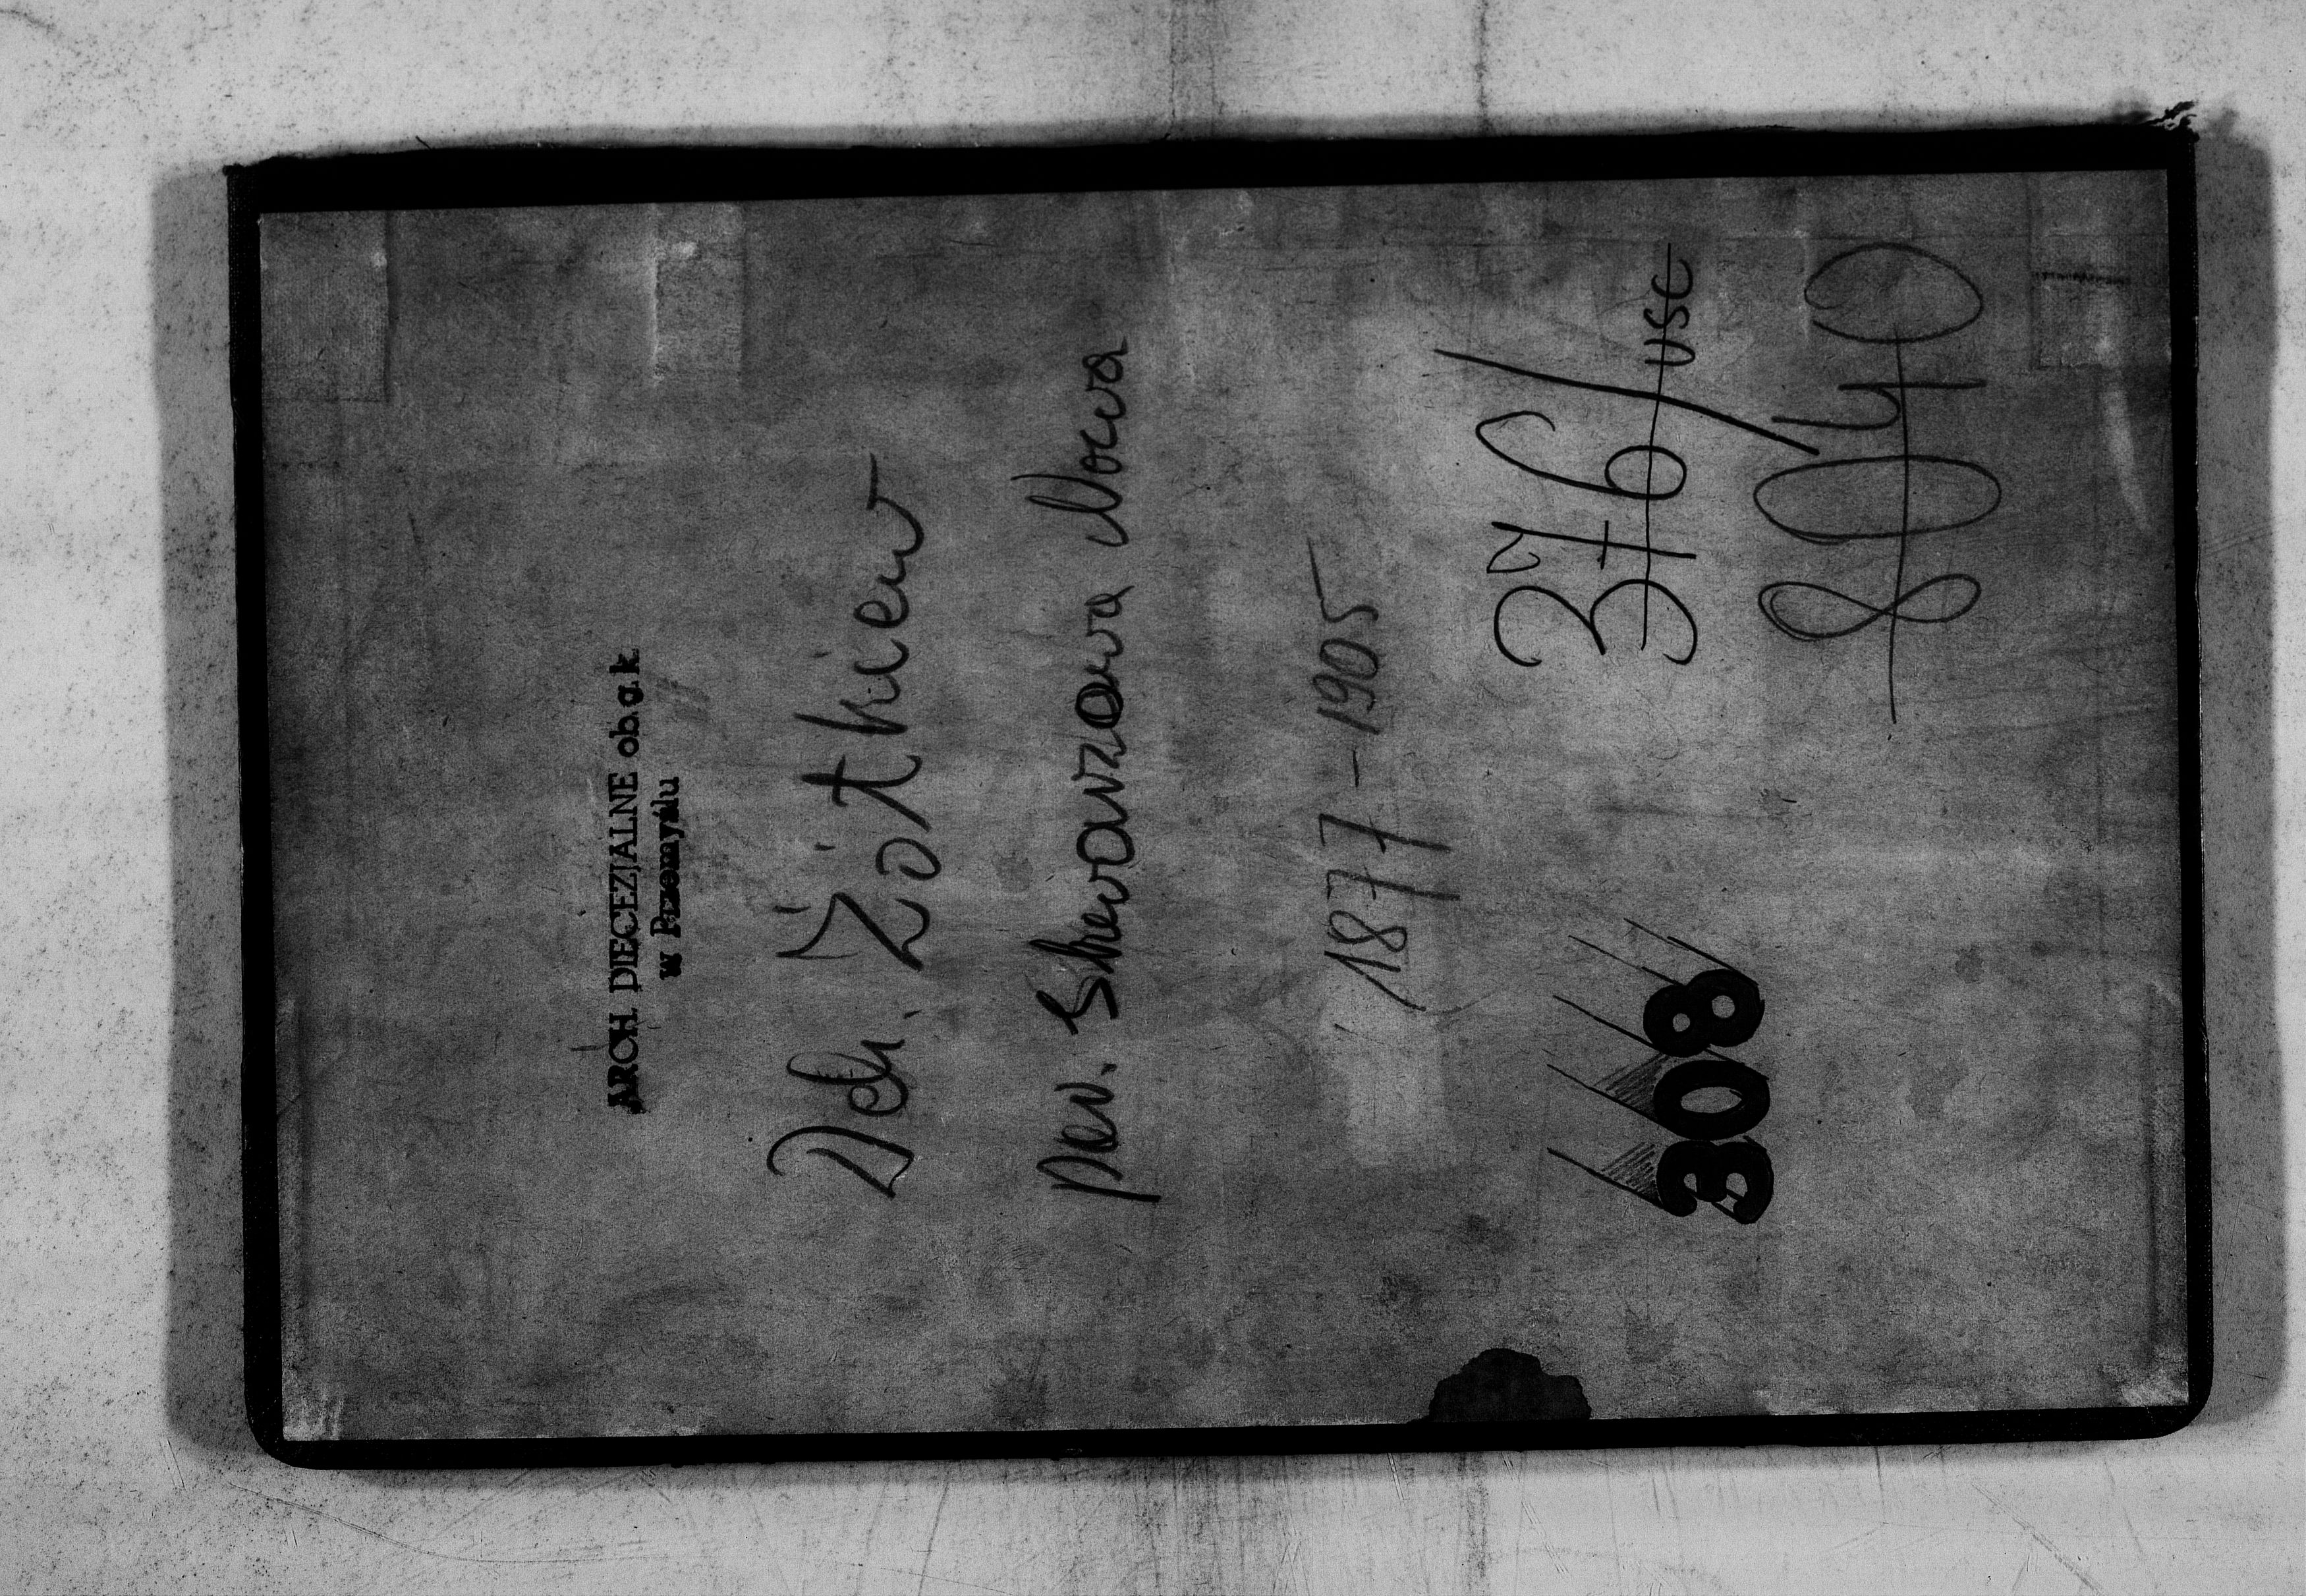 ARCH. DIECEZJALNE ob. g. k.
w Przemyślu
Dek. Żółkiew
par. Skwarzawa Nowa
1877-1905
376/usc
8040
308